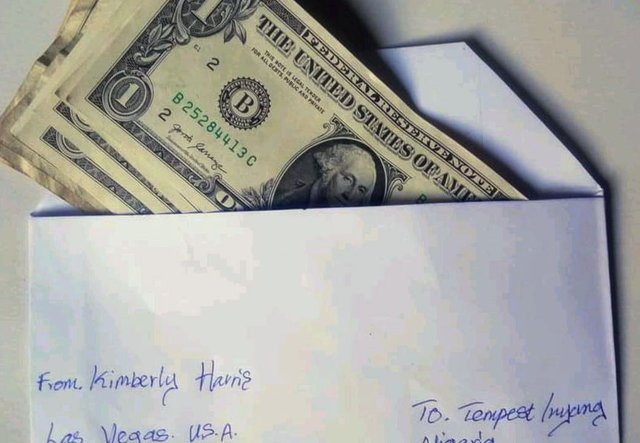 FEDERAL RESERVE NOTE
THE UNITED STATES OF AME
THIS NOTE IS LEGAL TENDER
FOR ALL DEBTS, PUBLIC AND PRIVATE
2
B
B 25284413 C
2
1
1
B
From. Kimberly Harris
Las Vegas. U.S.A.
To. Tempest Inyang
Nigeria